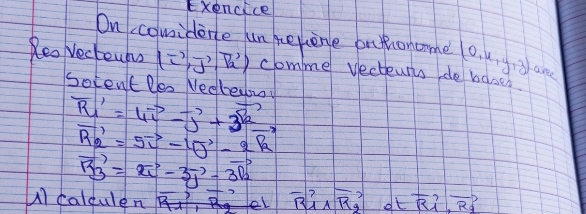 Exercice
On considère un repère orthonormé (O, x, y, z) avec
les vecteurs (i⃗, j⃗, k⃗) comme vecteurs de bases.
Soient les vecteurs.
R₁⃗ = 4i⃗ - j⃗ + 3k⃗
R₂⃗ = 5i⃗ - 4j⃗ - 2k⃗
R₃⃗ = 2i⃗ - 3j⃗ - 3k⃗
1) calculer R₁⃗ ∧ R₂⃗ et R₁⃗ . R₃⃗